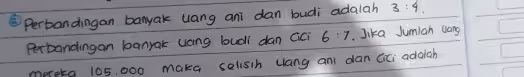 ⑥ Perbandingan banyak uang ani dan budi adalah 3 : 4.
Perbandingan banyak uang budi dan cici 6 : 7. Jika Jumlah uang
mereka 105.000 maka selisih uang ani dan cici adalah